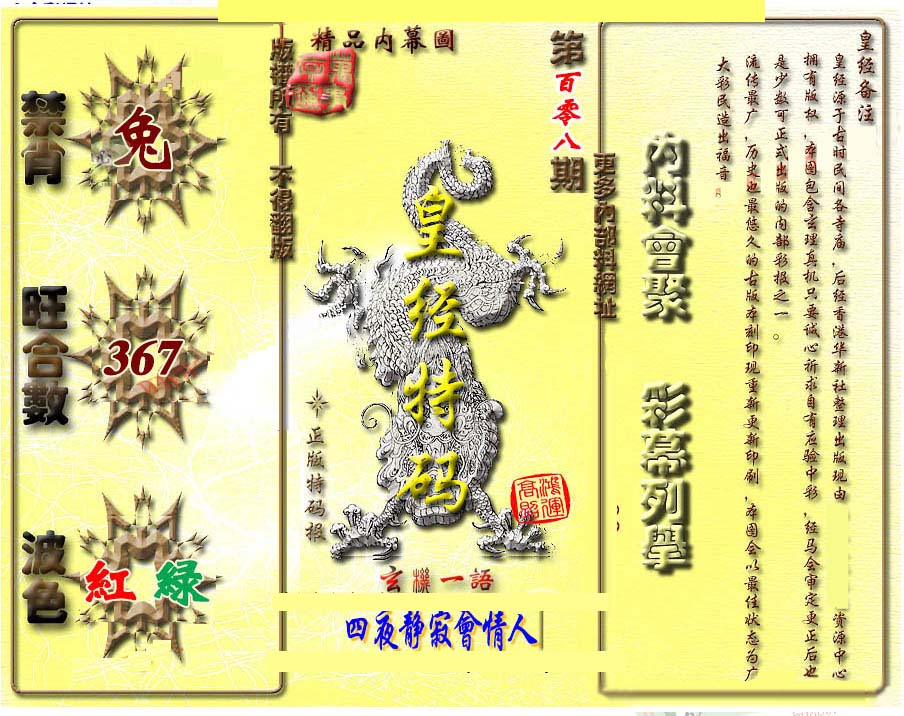 皇经备注
皇经源于古时民间各寺庙，后经香港华新社整理出版现由
资源中心
拥有版权，本图包含玄理真机只要诚心祈求自有应验中彩，经马会审定更正后也
是少数可正式出版的内部彩报之一。
流传最广，历史也最悠久的古版本刻印现重新更新印刷，本图会以最佳状态为广
大彩民造出福音
内料會聚
彩幕列舉
更多內部料網址
第百零八期
精品内幕圖
皇经特码
正版特码报
鴻運高照
玄機一語
四夜静寂會情人
版權所有 不得翻版
禁肖
兔
旺合數
367
波色
紅 綠